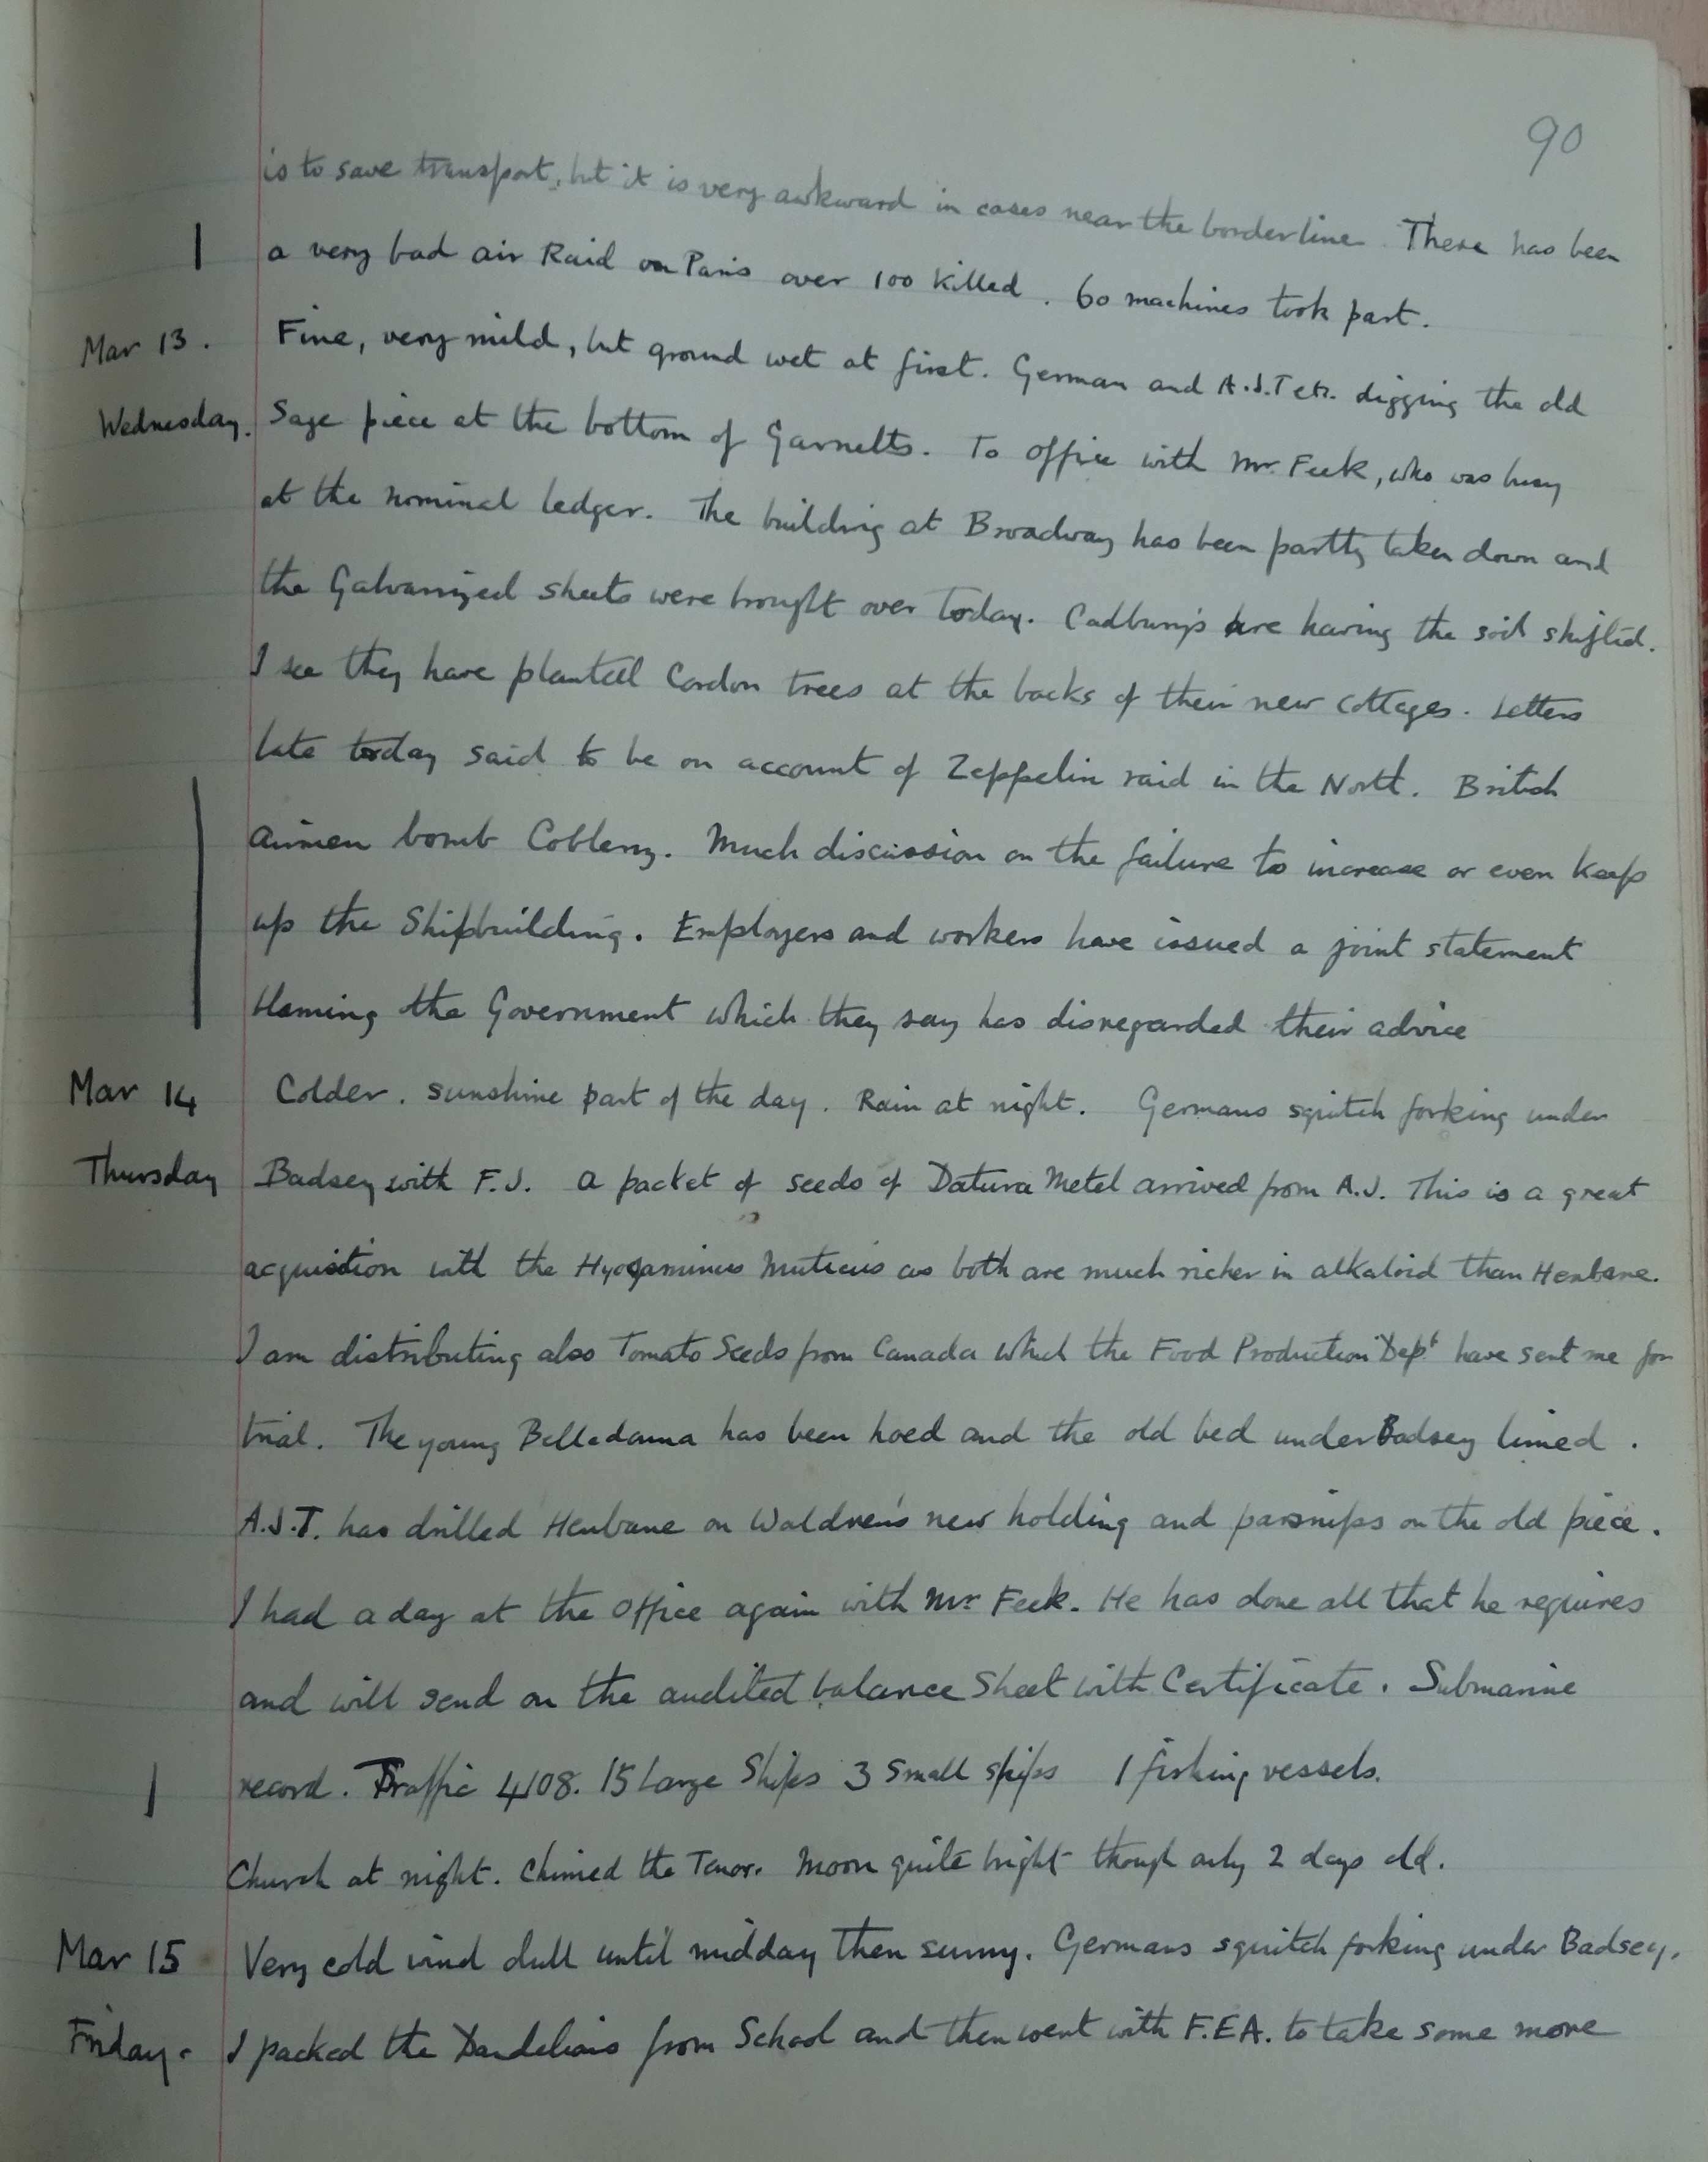 90
is to save transport, but it is very awkward in cases near the borderline. There has been
a very bad air Raid on Paris over 100 killed. 60 machines took part.
Mar 13. Fine, very mild, but ground wet at first. German and A.J.T etc. digging the old
Wednesday. Sage piece at the bottom of Garnetts. To office with Mr. Feek, who was busy
at the nominal ledger. The building at Broadway has been partly taken down and
the Galvanized sheets were brought over today. Cadbury's are having the soil shifted.
I see they have planted Cordon trees at the backs of their new cottages. Letters
late today said to be on account of Zeppelin raid in the North. British
airmen bomb Coblenz. Much discussion on the failure to increase or even keep
up the Shipbuilding. Employers and workers have issued a joint statement
blaming the Government which they say has disregarded their advice
Mar 14 Colder. sunshine part of the day. Rain at night. Germans squitch forking under
Thursday Badsey with F.J. A packet of seeds of Datura Metel arrived from A.J. This is a great
acquisition with the Hyosaminus Muticus as both are much richer in alkaloid than Henbane.
I am distributing also Tomato Seeds from Canada which the Food Production Dept have sent me for
trial. The young Belladonna has been hoed and the old bed under Badsey limed.
A.J.T. has drilled Henbane on Waldren's new holding and parsnips on the old piece.
I had a day at the Office again with Mr Feek. He has done all that he requires
and will send on the audited balance Sheet with Certificate. Submarine
record. Traffic 4108. 15 Large Ships 3 Small ships 1 fishing vessels.
Church at night. Chimed the Tenor. Moon quite bright though only 2 days old.
Mar 15 Very cold wind dull until midday then sunny. Germans squitch forking under Badsey.
Friday. I packed the Dandelions from School and then went with F.E.A. to take some more